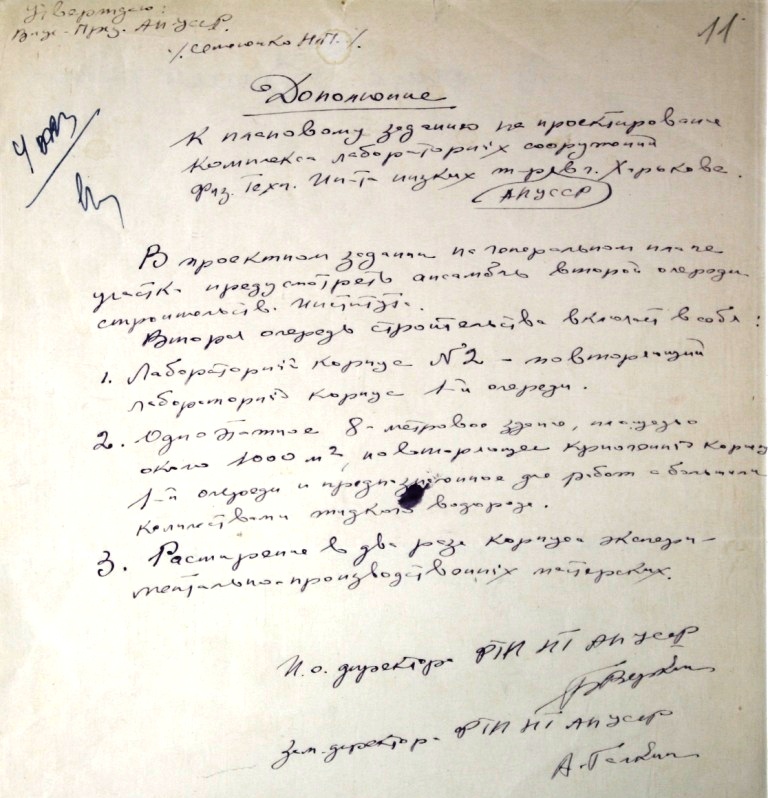 Утверждаю:
Вице-През. АН УССР.
/Семененко Н.П./.
11
4 экз
Дополнение
к плановому заданию на проектирование
комплекса лабораторных сооружений
Физ. Техн. Ин-та низких т-р в г. Харькове.
АН УССР
В проектном задании на генеральном плане
участка предусмотреть ансамбль второй очереди
строительств. Института.
Вторая очередь строительства включает в себя:
1. Лабораторный корпус №2 – повторяющий
лабораторный корпус 1-й очереди.
2. Одноэтажное 8-метровое здание, площадью
около 1000 м², повторяющее криогенный корпус
1-й очереди и предназначенное для работ с большими
количествами жидкого водорода.
3. Расширение в два раза корпуса экспери-
ментально-производственных мастерских.
И.о. директора ФТИ НТ АН УССР
БВеркин
Зам. директора ФТИ НТ АН УССР
А. Галкин